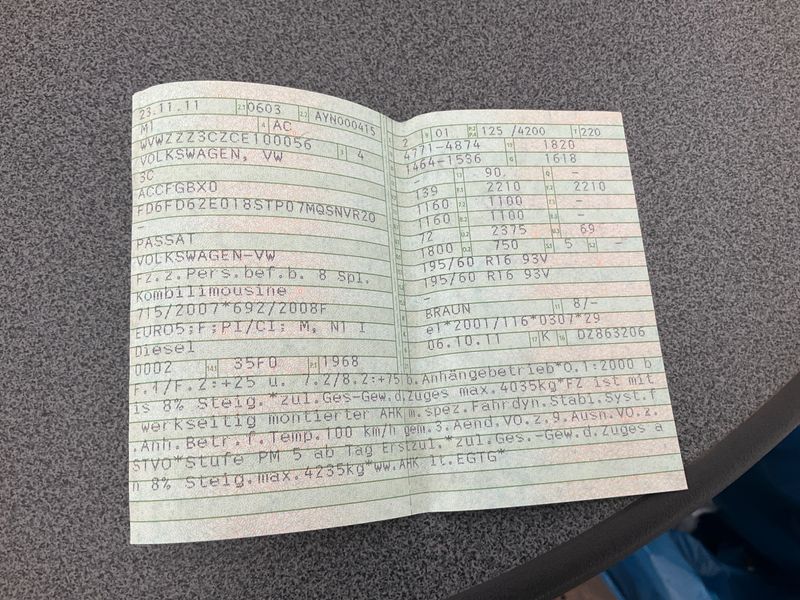 23.11.11 2.1 0603 2.2 AYN000415
M1 4 AC
WVWZZZ3CZCE100056 3 4
VOLKSWAGEN, VW
3C
ACCFGBX0
FD6FD62E018STP07MQSNVR20
-
PASSAT
VOLKSWAGEN-VW
Fz.z.Pers.bef.b. 8 Spl.
Kombilimousine
715/2007*692/2008F
EURO5;F;PI/CI; M, N1 I
Diesel
0002 14.1 35F0 P.1 1968
2 9 01 P.2 P.4 125 /4200 T 220
4771-4874 1820
1464-1536 G 1618
- 90 -
139 2210 2210
1160 1100 -
1160 1100 -
72 2375 69
1800 750 5 -
195/60 R16 93V
195/60 R16 93V
-
BRAUN 11 8/-
e1*2001/116*0307*29
06.10.11 17 K 16 DZ863206
F.1/F.2:+25 u. 7.2/8.2:+75 b.Anhängebetrieb*O.1:2000 b
is 8% Steig.*zul.Ges-Gew.d.Zuges max.4035kg*FZ ist mit
werkseitig montierter AHK m.spez.Fahrdyn.Stabi.Syst.f
.Anh.Betr.f.Temp.100 km/h gem.3.Aend.VO.z.9.Ausn.VO.z.
STVO*Stufe PM 5 ab Tag Erstzul.*zul.Ges.-Gew.d.Zuges a
n 8% Steig.max.4235kg*ww.AHK lt.EGTG*